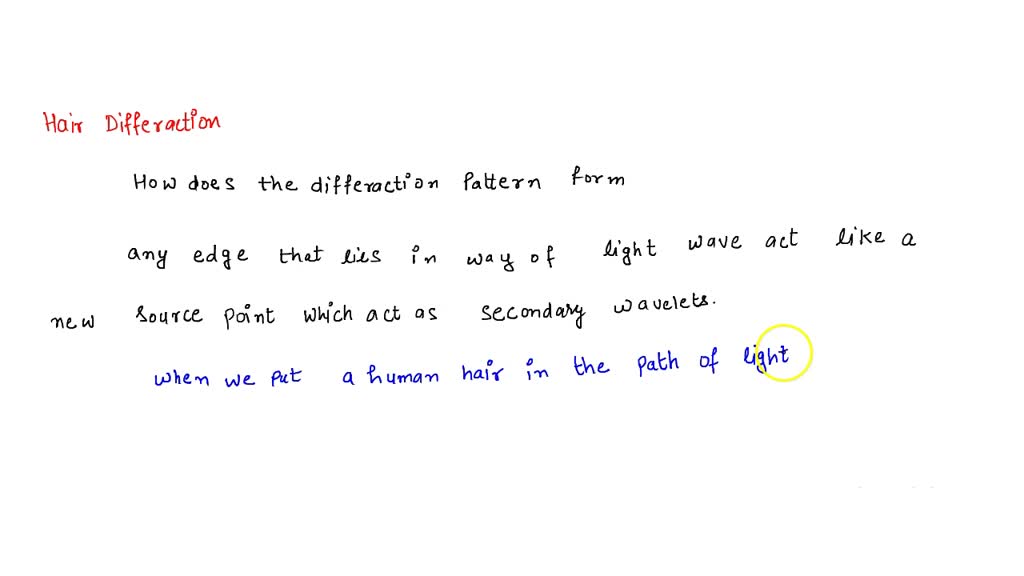 Hair Differaction
How does the differaction Pattern form
any edge that lies in way of light wave act like a
new source point which act as secondary wavelets.
when we put a human hair in the path of light